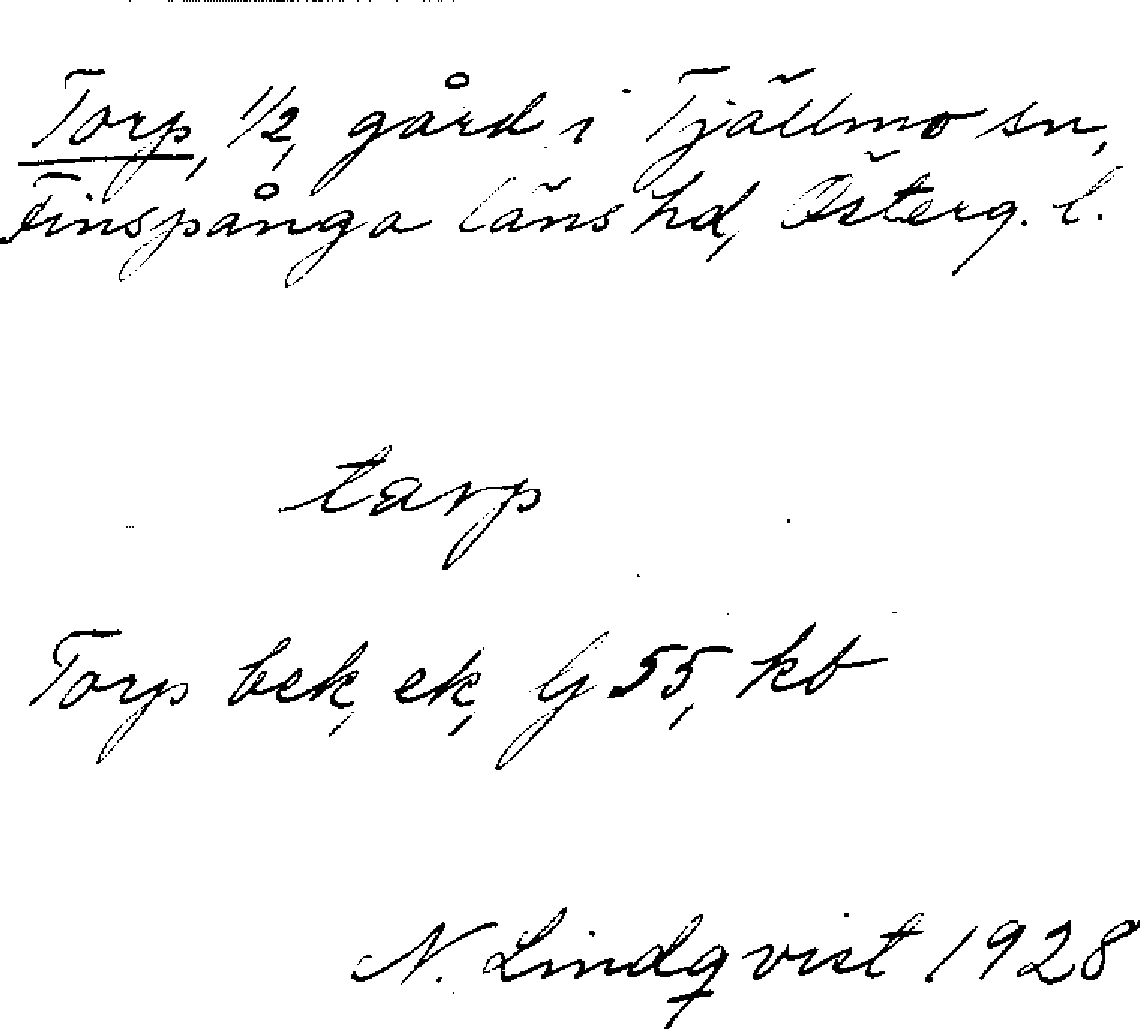 Torp, 1/2, gård i Tjällmo sn,
Finspånga läns hd, Österg. l.
tarp
Torp bek, ek, G 55, kb
N. Lindqvist 1928